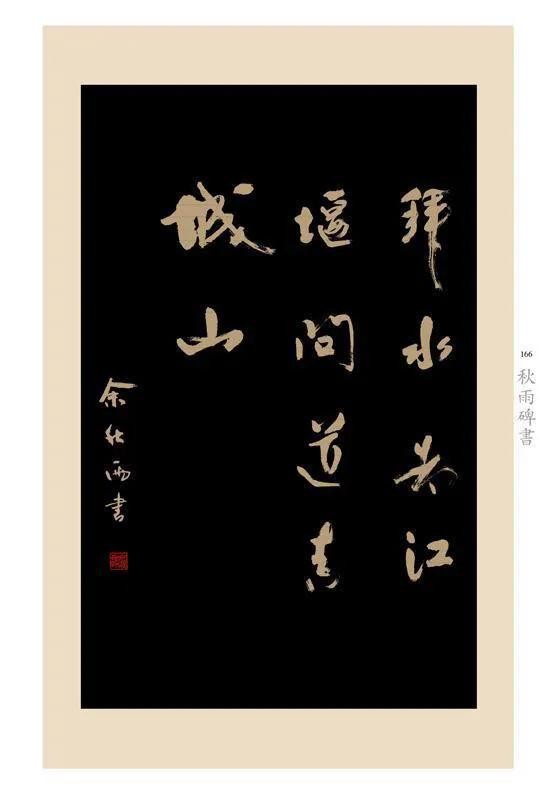 拜水都江
堰问道青
城山
余秋雨书
166
秋雨碑書